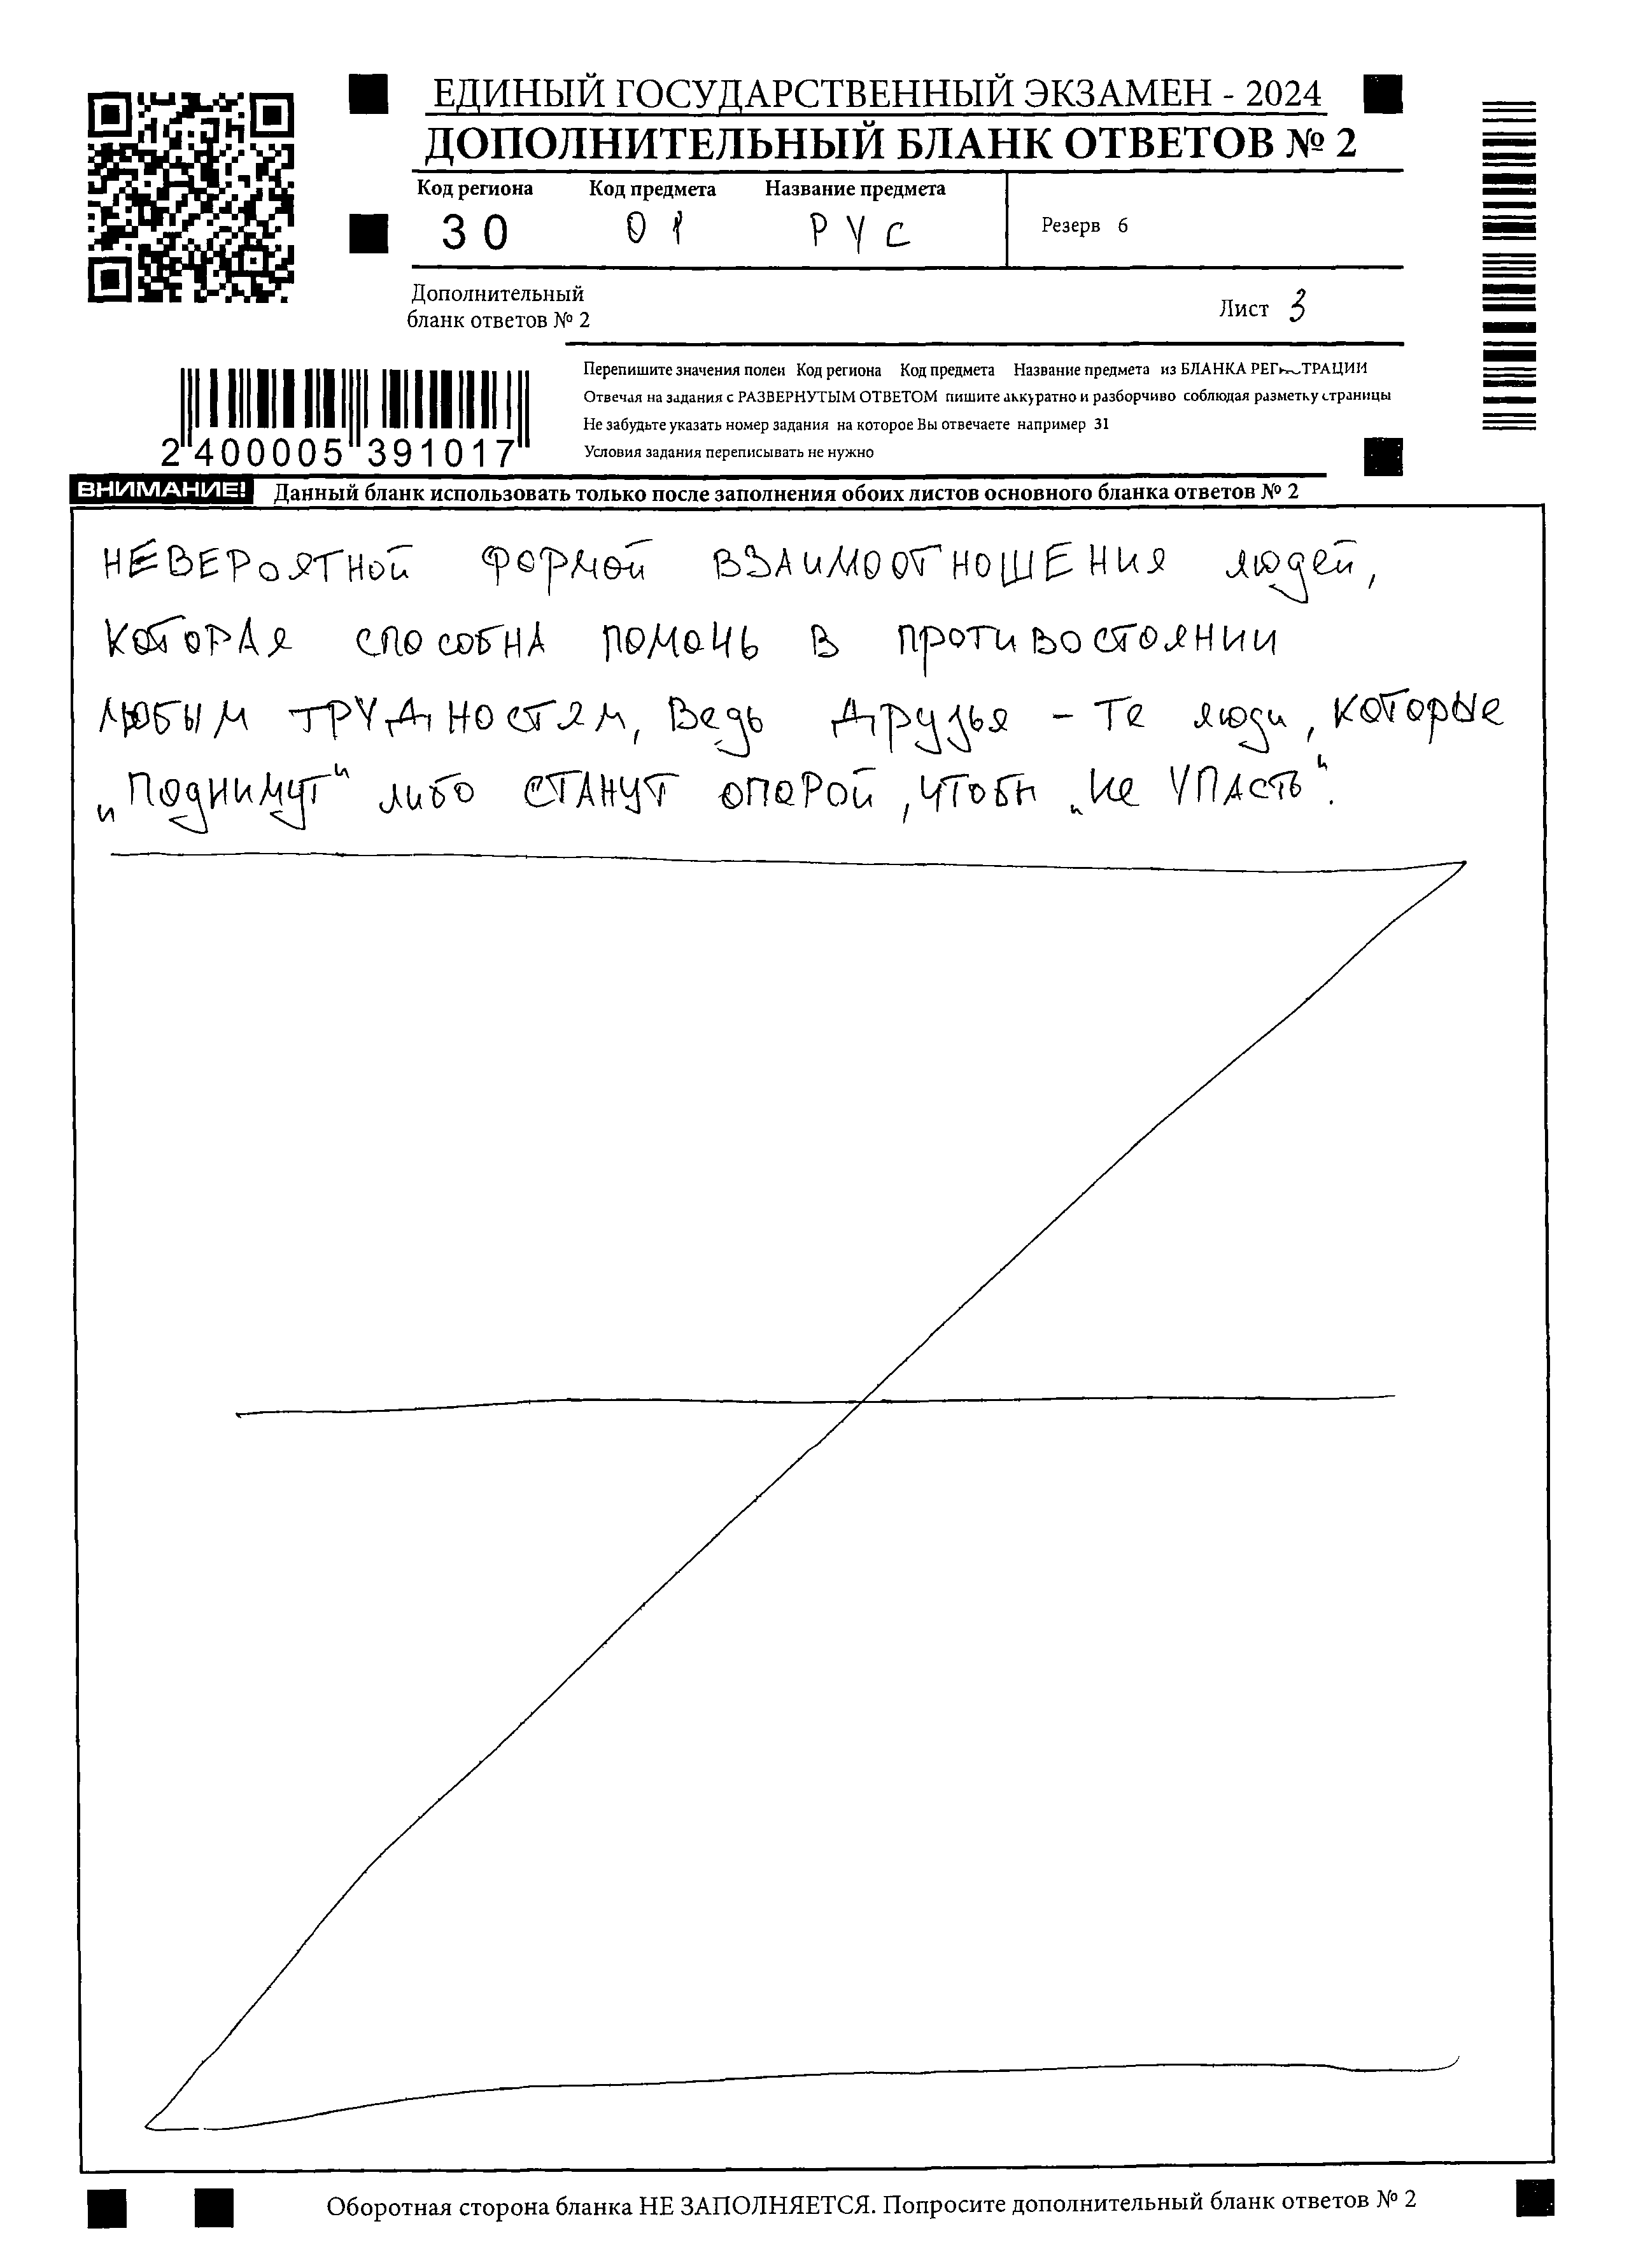 ЕДИНЫЙ ГОСУДАРСТВЕННЫЙ ЭКЗАМЕН - 2024
ДОПОЛНИТЕЛЬНЫЙ БЛАНК ОТВЕТОВ № 2
Код региона Код предмета Название предмета
30 01 РУС
Резерв 6
Дополнительный
бланк ответов № 2
Лист 3
Перепишите значения полей Код региона Код предмета Название предмета из БЛАНКА РЕГИСТРАЦИИ
Отвечая на задания с РАЗВЕРНУТЫМ ОТВЕТОМ пишите аккуратно и разборчиво соблюдая разметку страницы
Не забудьте указать номер задания на которое Вы отвечаете например 31
Условия задания переписывать не нужно
2 400005 391017
ВНИМАНИЕ! Данный бланк использовать только после заполнения обоих листов основного бланка ответов № 2
невероятной формой взаимоотношения людей,
которая способна помочь в противостоянии
любым трудностям, Ведь друзья - те люди, которые
„поднимут“ либо станут опорой, чтобы „не упасть“.
Оборотная сторона бланка НЕ ЗАПОЛНЯЕТСЯ. Попросите дополнительный бланк ответов № 2